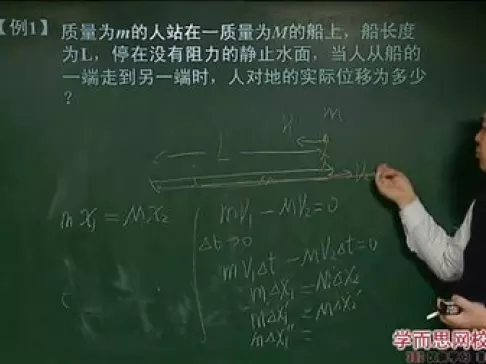 【例1】 质量为m的人站在一质量为M的船上，船长度
为L，停在没有阻力的静止水面，当人从船的
一端走到另一端时，人对地的实际位移为多少
？
m
L
V₂
mx₁=Mx₂
mV₁-MV₂=0
Δt→0
mV₁Δt-MV₂Δt=0
mΔx₁=MΔx₂
mΔx₁'=MΔx₂'
mΔx₁''=
学而思网校